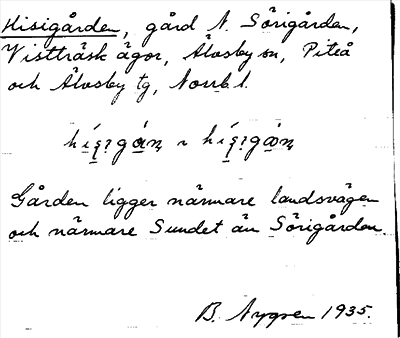 Hisigården, gård N. Sörigården,
Vistträsk ägor, Älvsby sn, Piteå
och Älvsby tg, Norrb. l.
Gården ligger närmare landsvägen
och närmare Sundet än Sörigården
B. Nygren 1935.